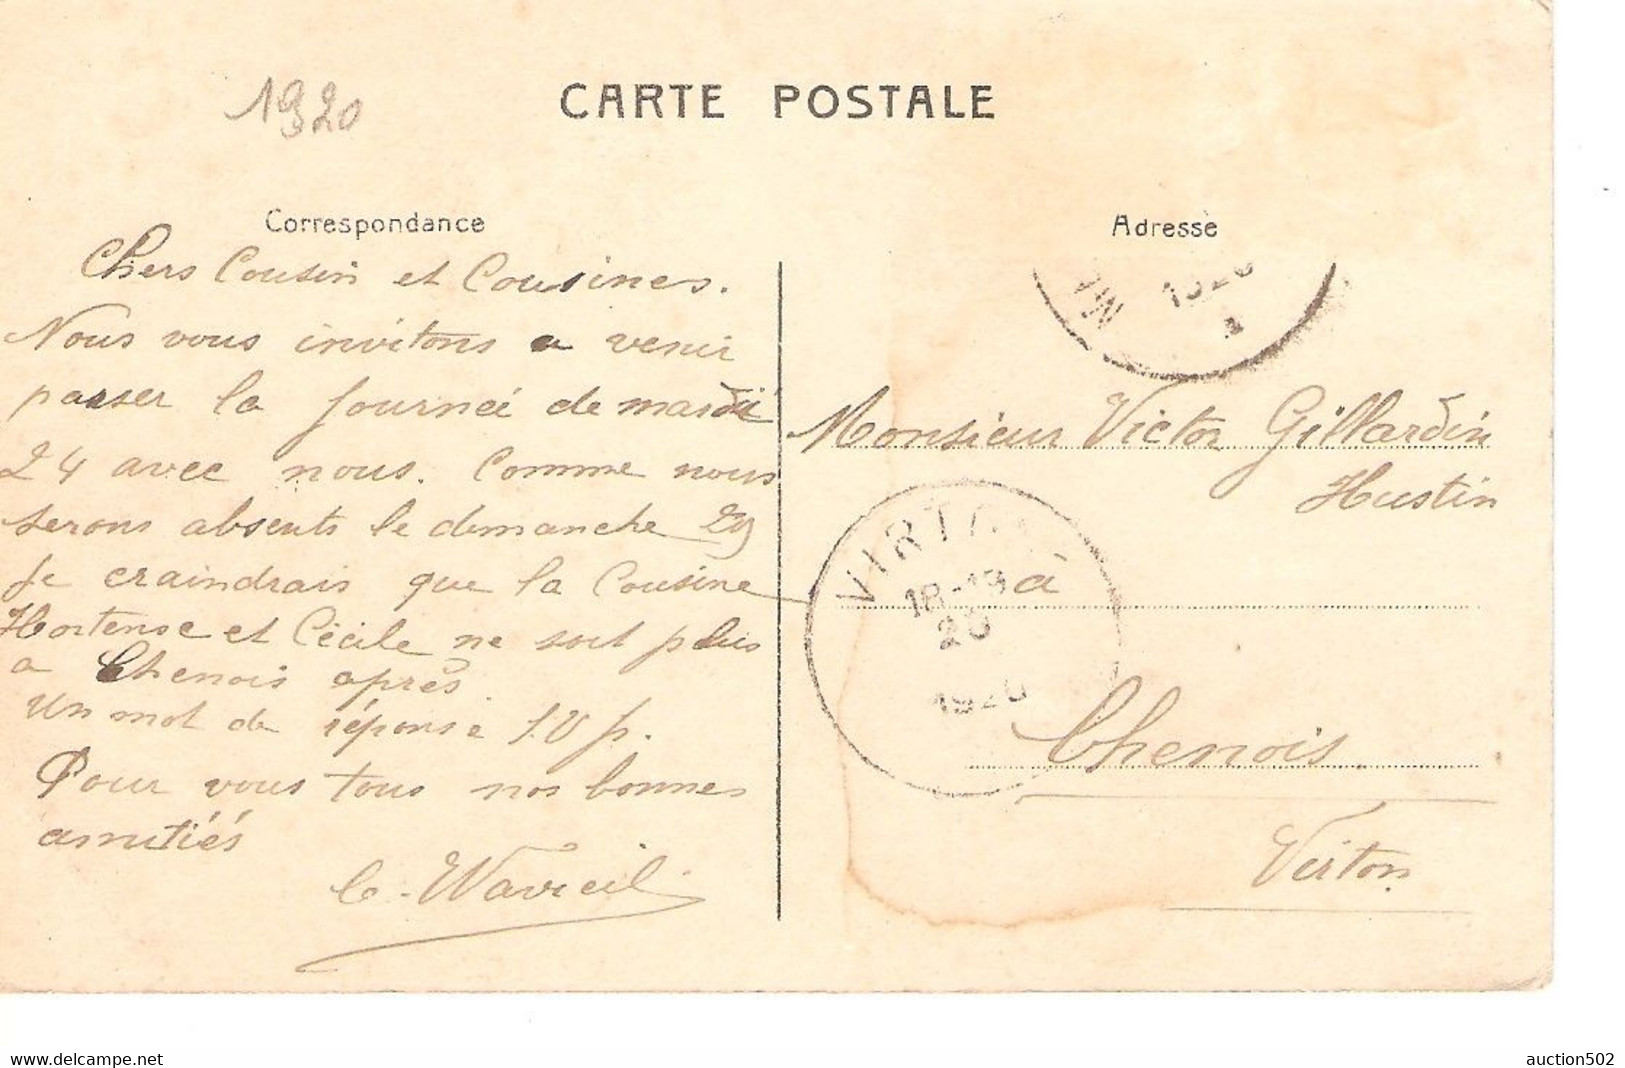 1920
CARTE POSTALE
Correspondance
Adresse
Chers Cousin et Cousines.
Nous vous invitons a venir
passer la journeé de mardi
24 avec nous. Comme nous
serons absents le dimanche 29
Je craindrais que la Cousine
Hortense et Cécile ne soit plus
a Chenois après
Un mot de réponse S.V.p.
Pour vous tous nos bonnes
amitiés
1920
Monsieur Victor Gillardin
Hustin
à
VIRTON
18-19
20
1920
Chenois.
Virton
auction502.delcampe.net
auction502